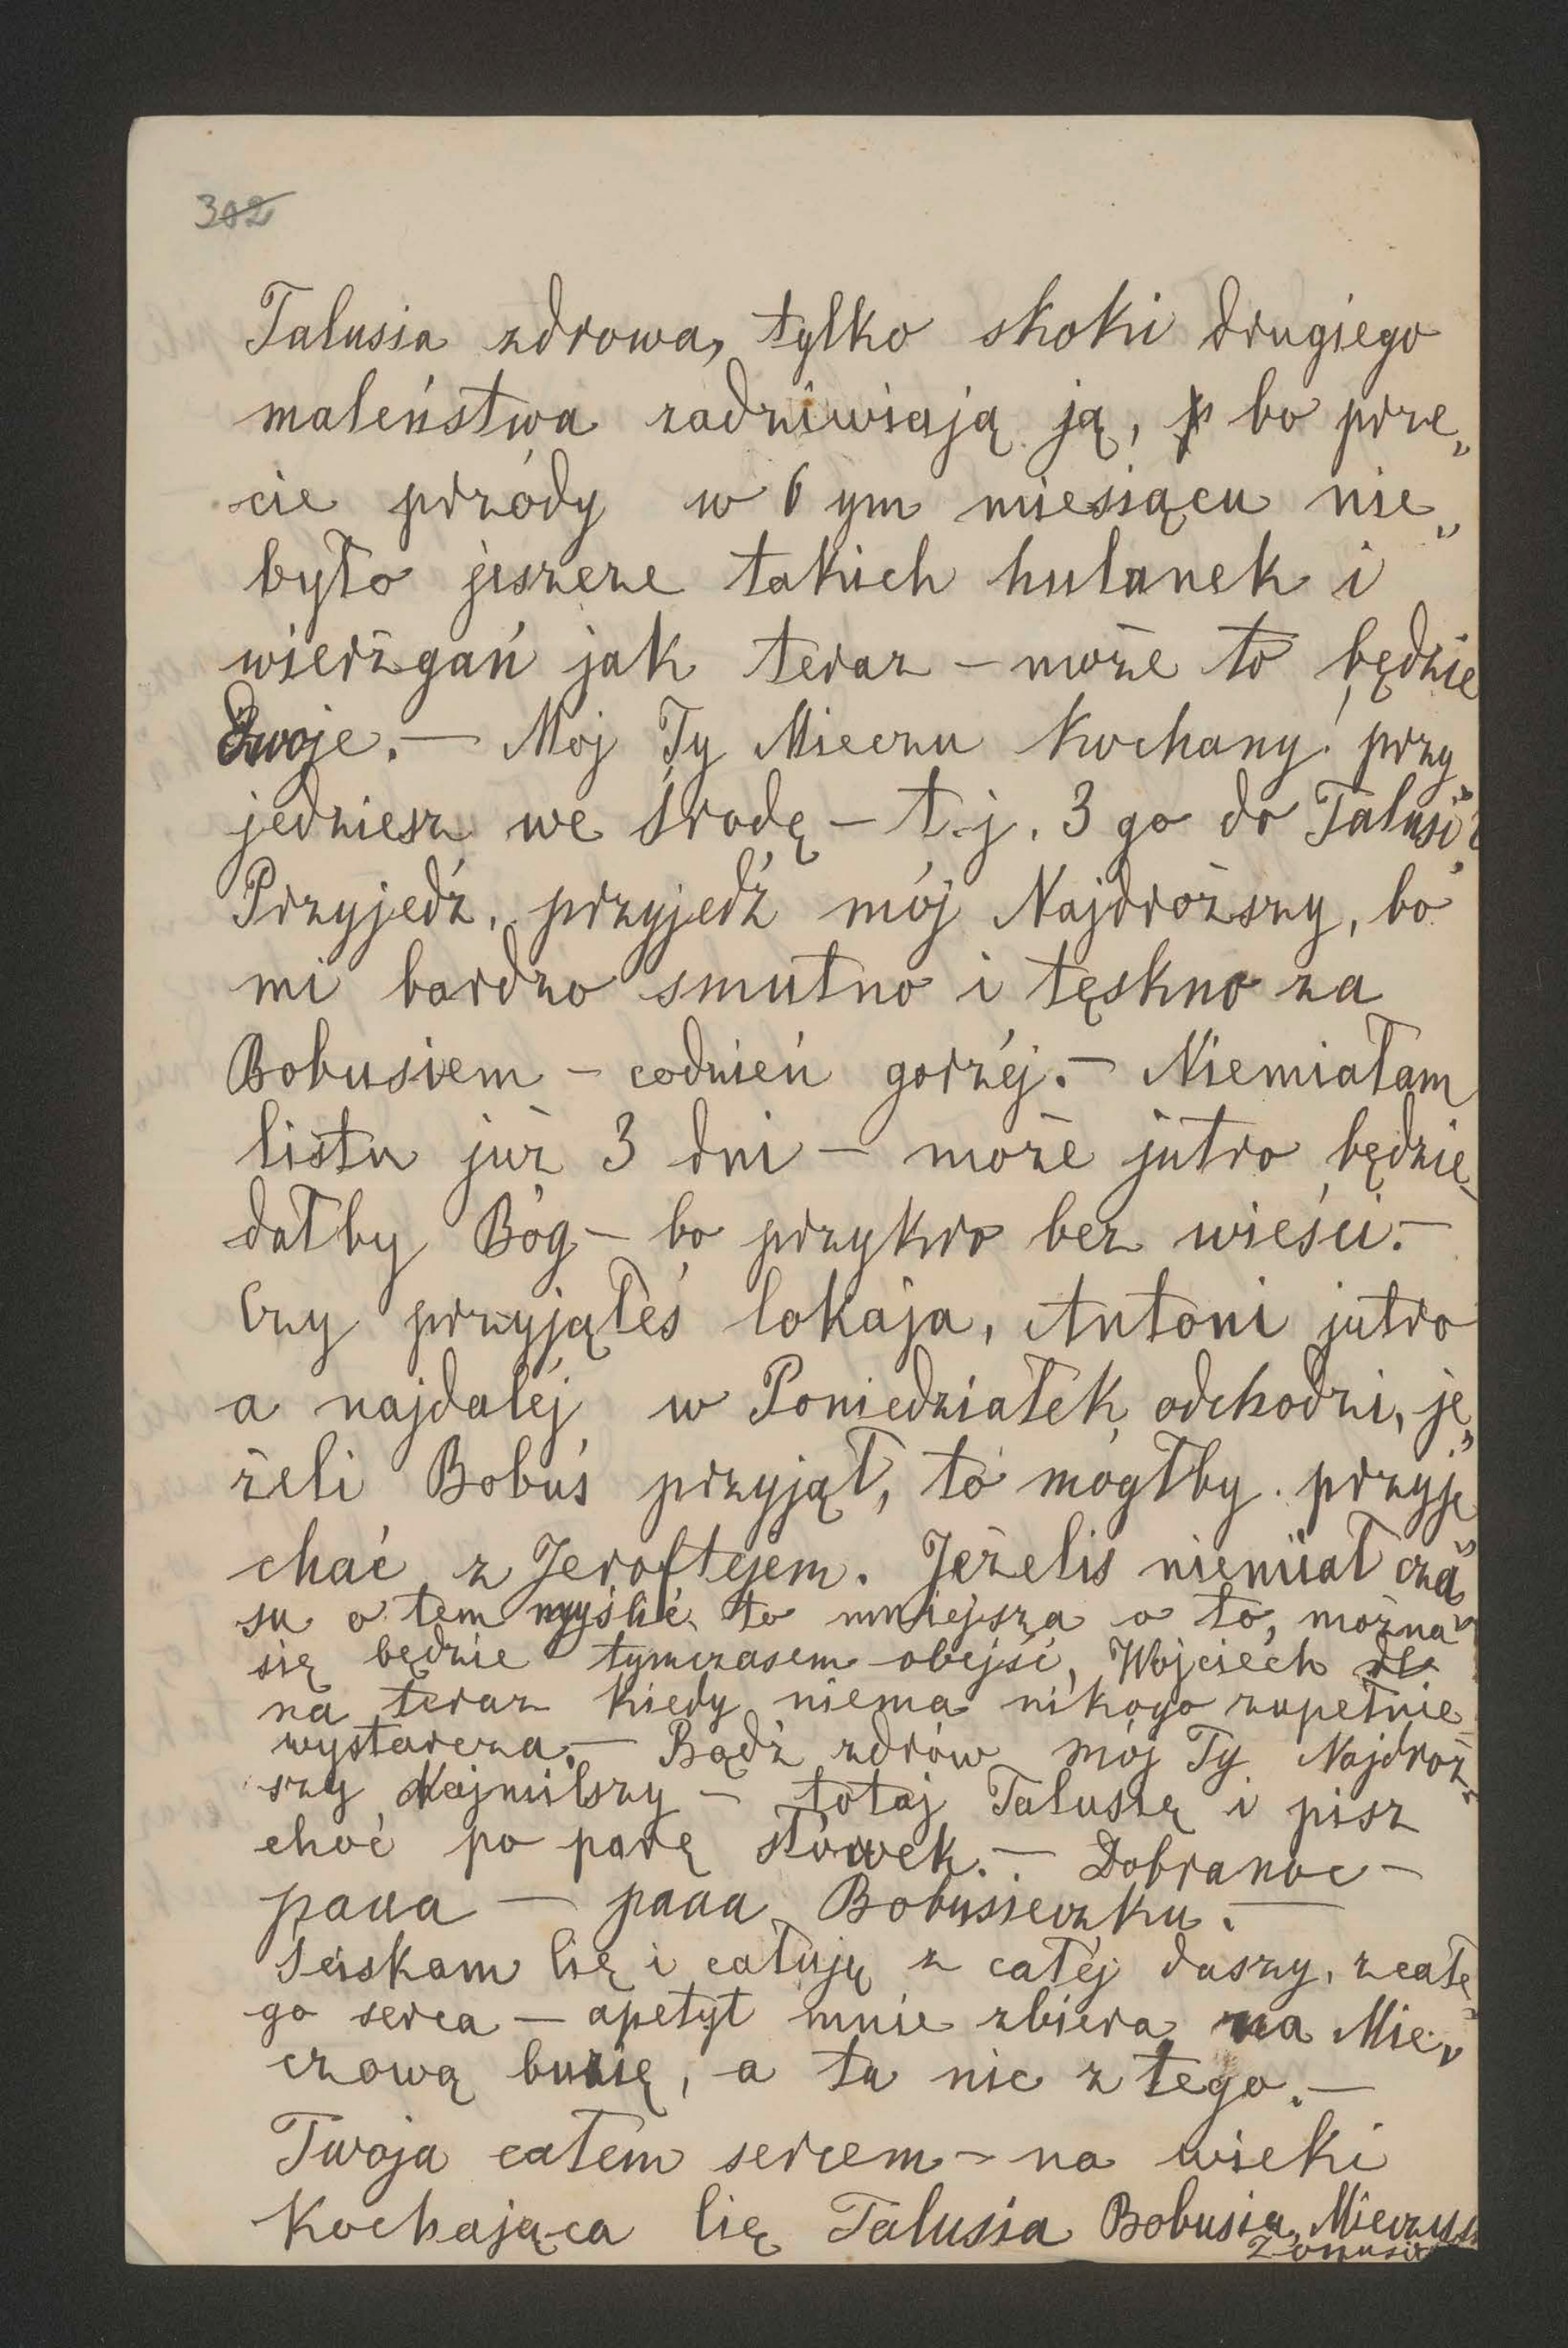 302
Talusia zdrowa, tylko skoki drugiego
maleństwa zadziwiają ją, bo prze„
cie przódy w 6 ym miesiącu nie„
było jeszcze takich hulanek i
wierzgań jak teraz – może to będzie
dwoje. – Mój Ty Mieczu kochany! przy„
jedziesz we środę – t.j. 3 go do Talusi?
Przyjedź, przyjedź mój Najdroższy, bo
mi bardzo smutno i tęskno za
Bobusiem – codzień gorzéj. – Niemiałam
listu już 3 dni – może jutro będzie –
dałby Bóg – bo przykro bez wieści. –
Czy przyjąłeś lokaja, Antoni jutro
a najdaléj w Poniedziałek odchodzi, je„
żeli Bobuś przyjął, to mógłby przyje„
chać z Jeroftejem. Jeżeliś niemiał cza„
su o tem myśleć to mniejsza o to, można
się będzie tymczasem obejść, Wojciech
na teraz kiedy niema nikogo zupełnie
wystarcza. – Bądź zdrów mój Ty Najdroż„
szy Najmilszy – totaj Talusię i pisz
choć po parę słówek. – Dobranoc –
paaa – paaa Bobusieczku. –
Sciskam Cię i całuję z całéj duszy, z całe„
go serca – apetyt mnie zbiera na Mie„
czową buzię, a tu nic z tego. –
Twoja całem sercem – na wieki
Kochająca Cię Talusia Bobusia,
Żonusia